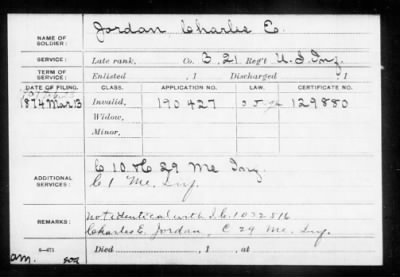 NAME OF SOLDIER: Jordan, Charles E.
SERVICE: Late rank, Co. B, 21 Reg't U.S. Inf.
TERM OF SERVICE: Enlisted , 1 Discharged , 1
DATE OF FILING. CLASS. APPLICATION NO. LAW. CERTIFICATE NO.
1874 Mar 13 Invalid, 190427 129880
Widow,
Minor,
ADDITIONAL SERVICES: C 10 & C 29 Me Inf.
C 1 Me. Inf.
REMARKS: Not identical with I.C. 1032516
Charles E. Jordan, C 29 Me. Inf.
Died , 1 , at